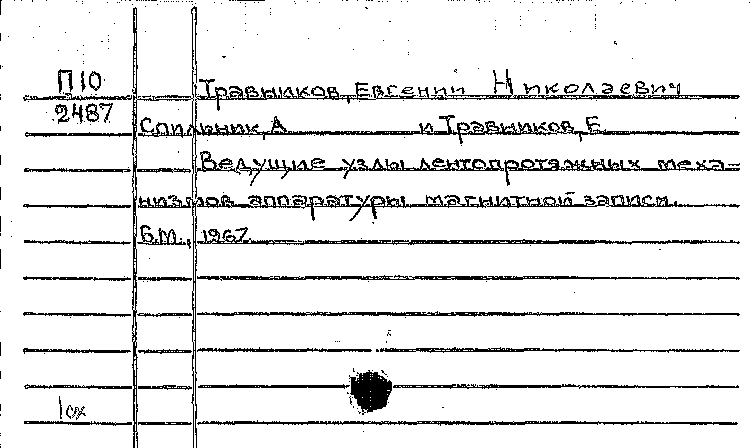 П10
2487
Травников, Евгений Николаевич
Спильник, А и Травников, Е.
Ведущие узлы лентопротяжных меха-
низмов аппаратуры магнитной записи.
Б.М., 1967.